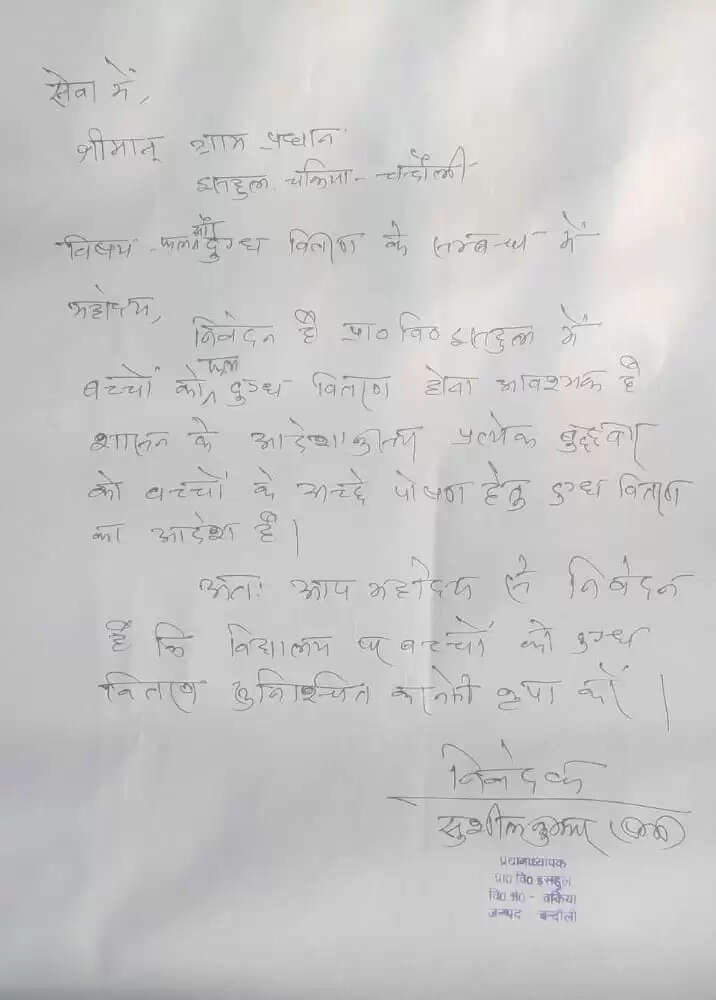 सेवा में,
श्रीमान् ग्राम प्रधान
इसहुल चकिया - चन्दौली
विषय - फल और दुग्ध वितरण के सम्बन्ध में
महोदय,
निवेदन है प्रा० वि० इसहुल में
बच्चों को फल दुग्ध वितरण होना आवश्यक है
शासन के प्रत्येक बुद्धवार
को बच्चों के अच्छे पोषण हेतु दुग्ध वितरण
का आदेश है।
अतः आप महोदय से निवेदन
है कि विद्यालय पर बच्चों को दुग्ध
वितरण सुनिश्चित कराने की कृपा करें।
निवेदक
सुशील कुमार
प्रधानाध्यापक
प्रा० वि० इसहुल
वि० क्षे० - चकिया
जनपद चन्दौली